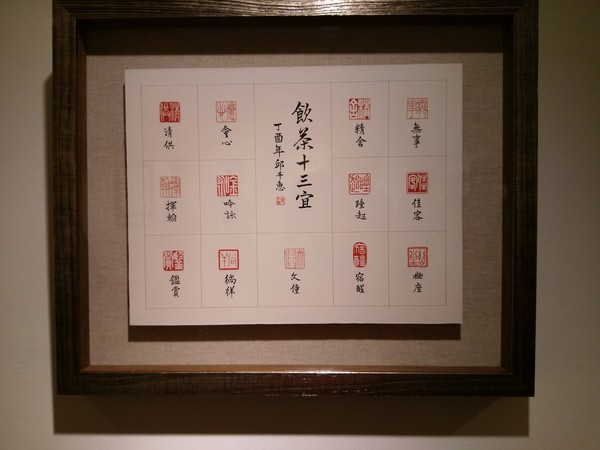 無事
佳客
幽座
精舍
睡起
宿醒
飲茶十三宜
丁酉年邱千惠
文僮
會心
吟詠
徜徉
清供
揮翰
鑑賞